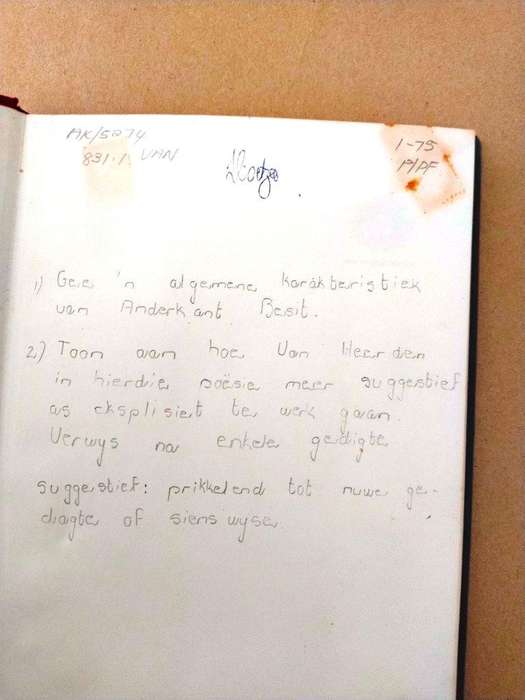 AK/5274
831.1 VAN
1-75
P/PF
1) Gee 'n algemene karakteristiek
van Anderkant Besit.
2) Toon aan hoe Van Heerden
in hierdie poësie meer suggestief
as eksplisiet te werk gaan.
Verwys na enkele gedigte
suggestief: prikkelend tot nuwe ge-
dagte of sienswyse